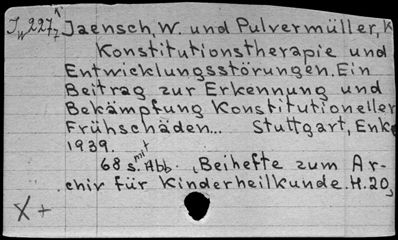 Jw 2277 Jaensch, W. und Pulvermüller, K
Konstitutionstherapie und
Entwicklungsstörungen. Ein
Beitrag zur Erkennung und
Bekämpfung Konstitutioneller
Frühschäden... Stuttgart, Enke
1939.
68 s. mit Abb. (Beihefte zum Ar-
chiv für Kinderheilkunde. H. 20)
X +